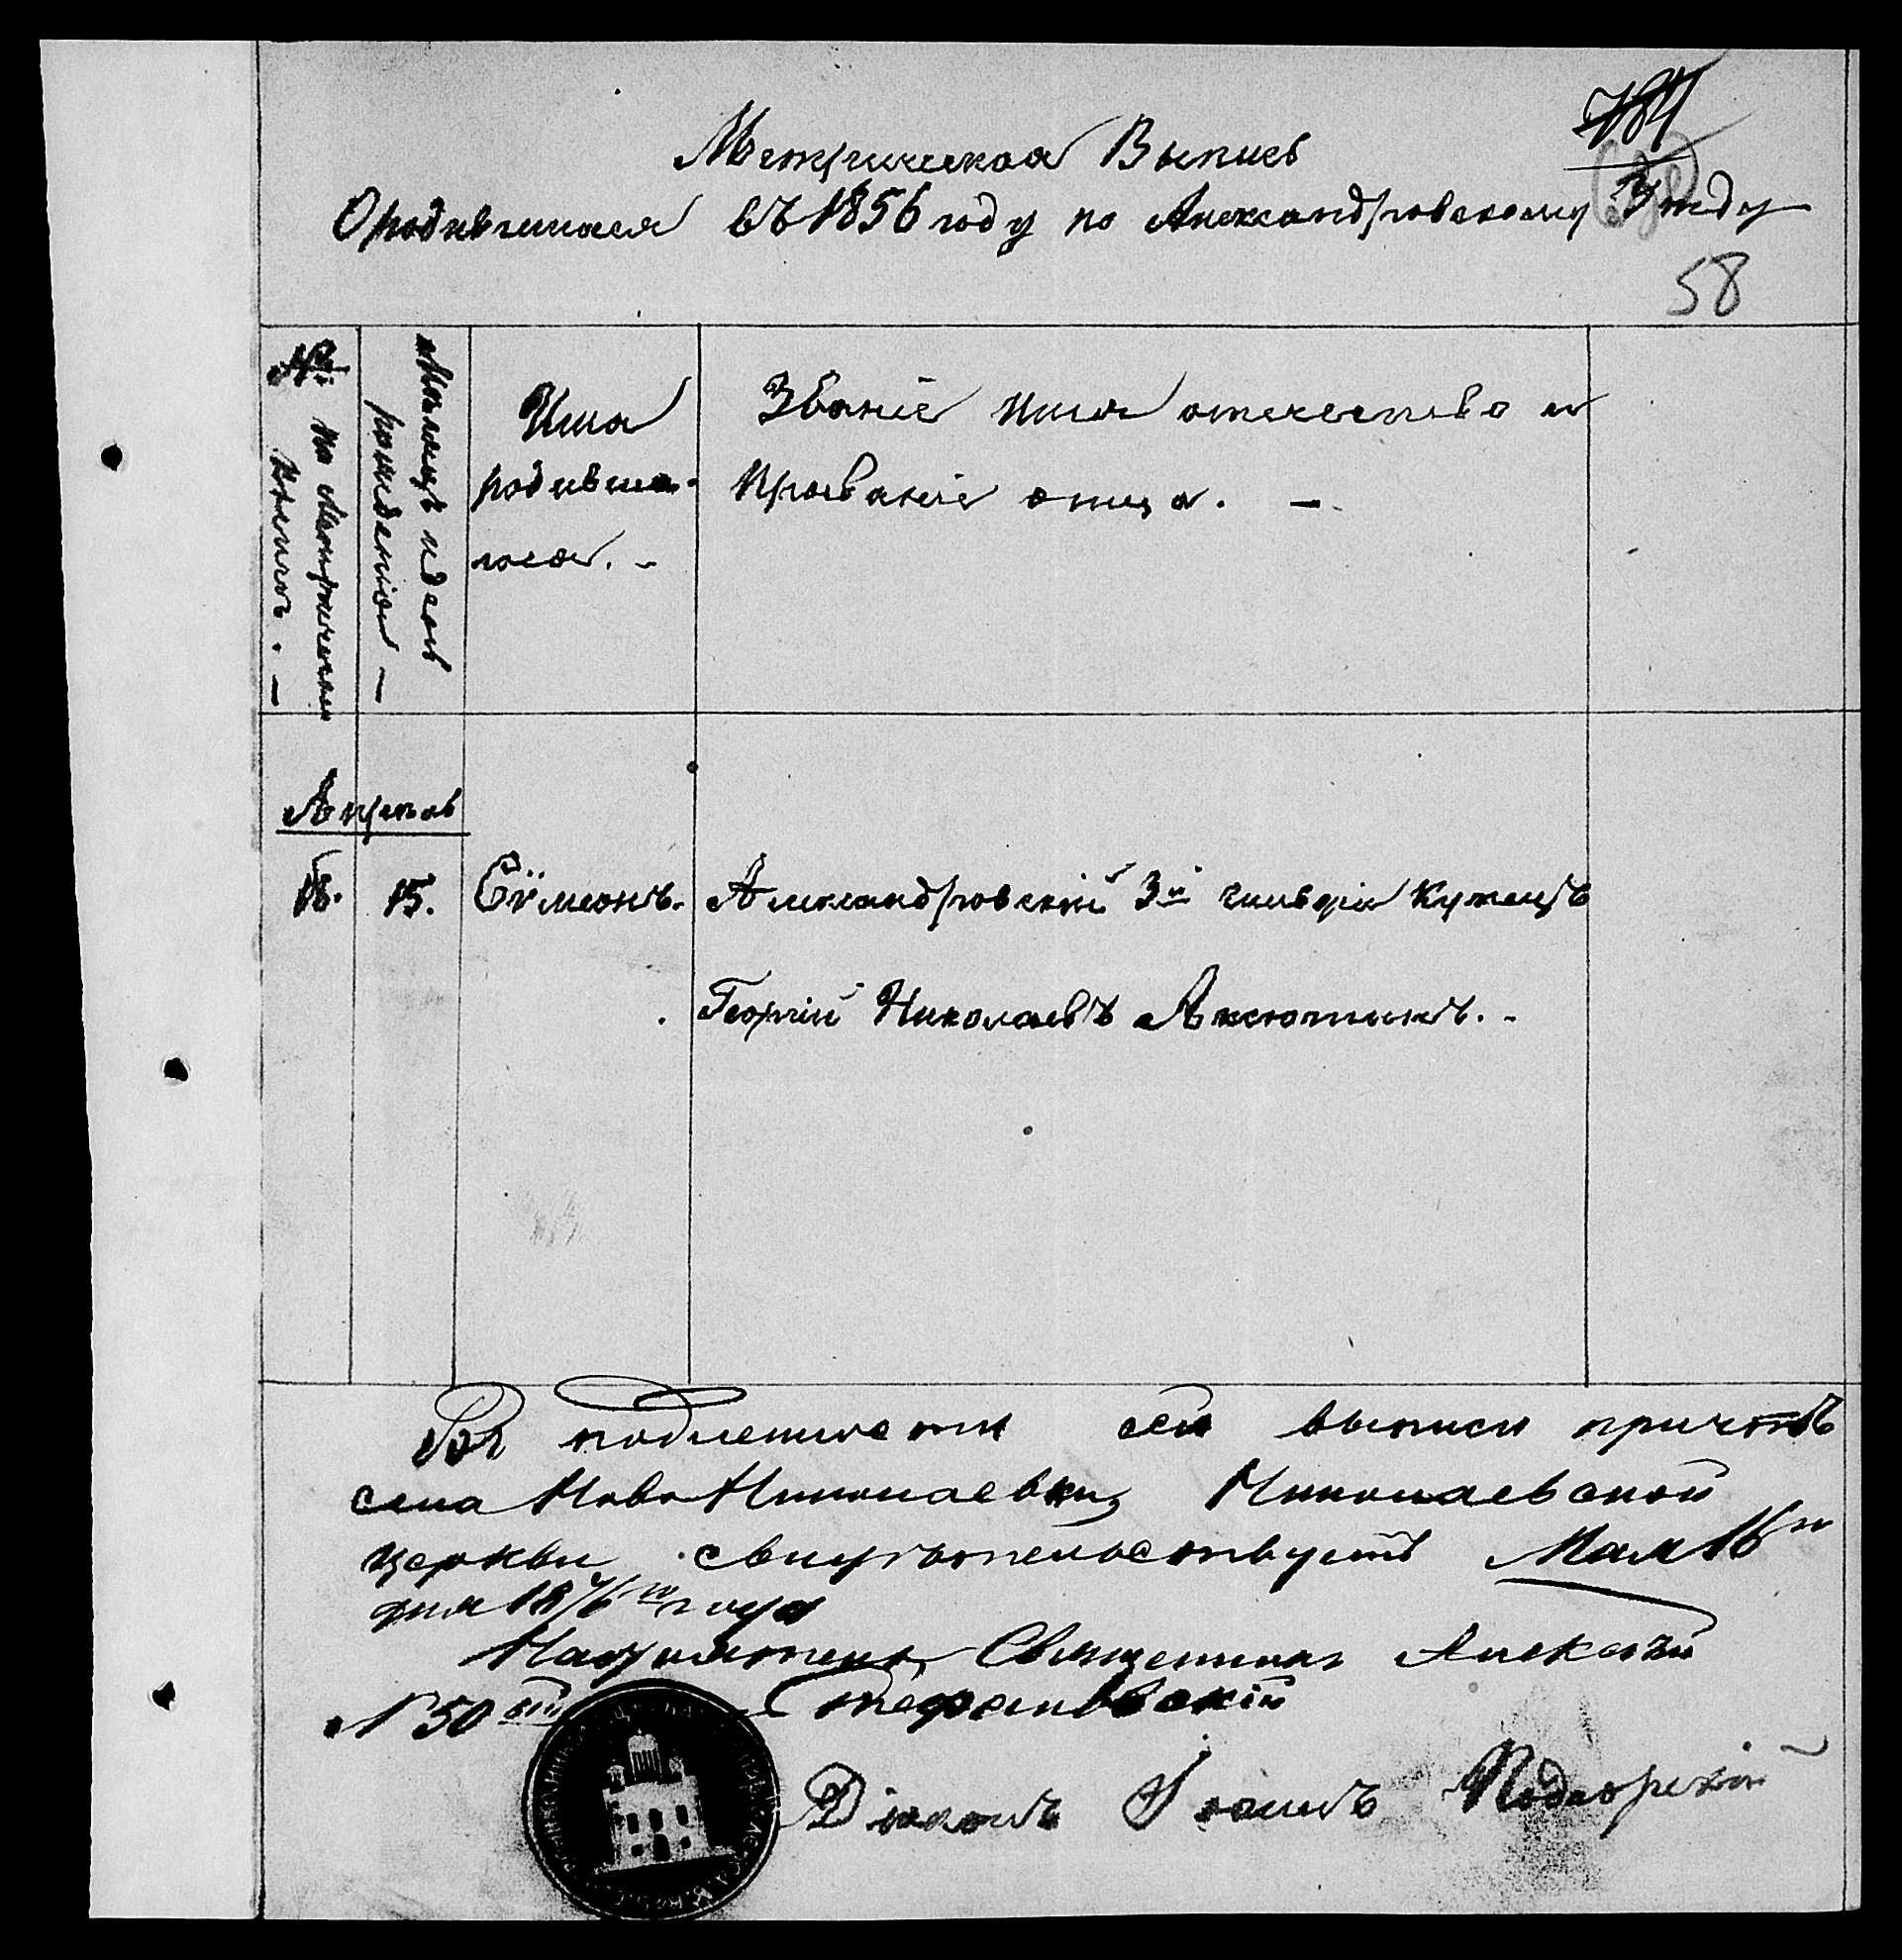 784
Метрическая Выпись
О родившемся въ 1856 году по Александровскому Уѣзду
58
№
по Метрическим
книгамъ. —
Мѣсяцъ и день
рожденія —
Имя
родивша-
гося. -
Званіе имя отечество и
прозваніе отца. —
Апрель
18. 15. Сѵмеонъ. Александровскій 3й гильдіи Купецъ
Георгій Николаевъ Аксютинъ. -
Въ подлености сей выписи причтъ
села Ново Николаевки, Николаевской
церкви свидѣтельствуетъ Мая 16го
дня 1876го года
Настоятель, Священникъ Алексѣй
Стефановскій
№ 50ый
Діаконъ Іоаннъ Подгорскій